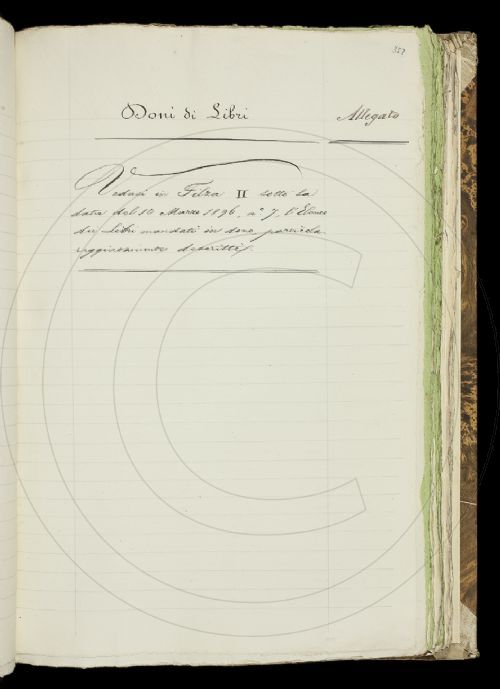 357
Doni di Libri
Allegato
Vedasi in Filza II sotto la
data del 10 Marzo 1896, n° 7 l'Elenco
dei Libri mandati in dono
descritti.